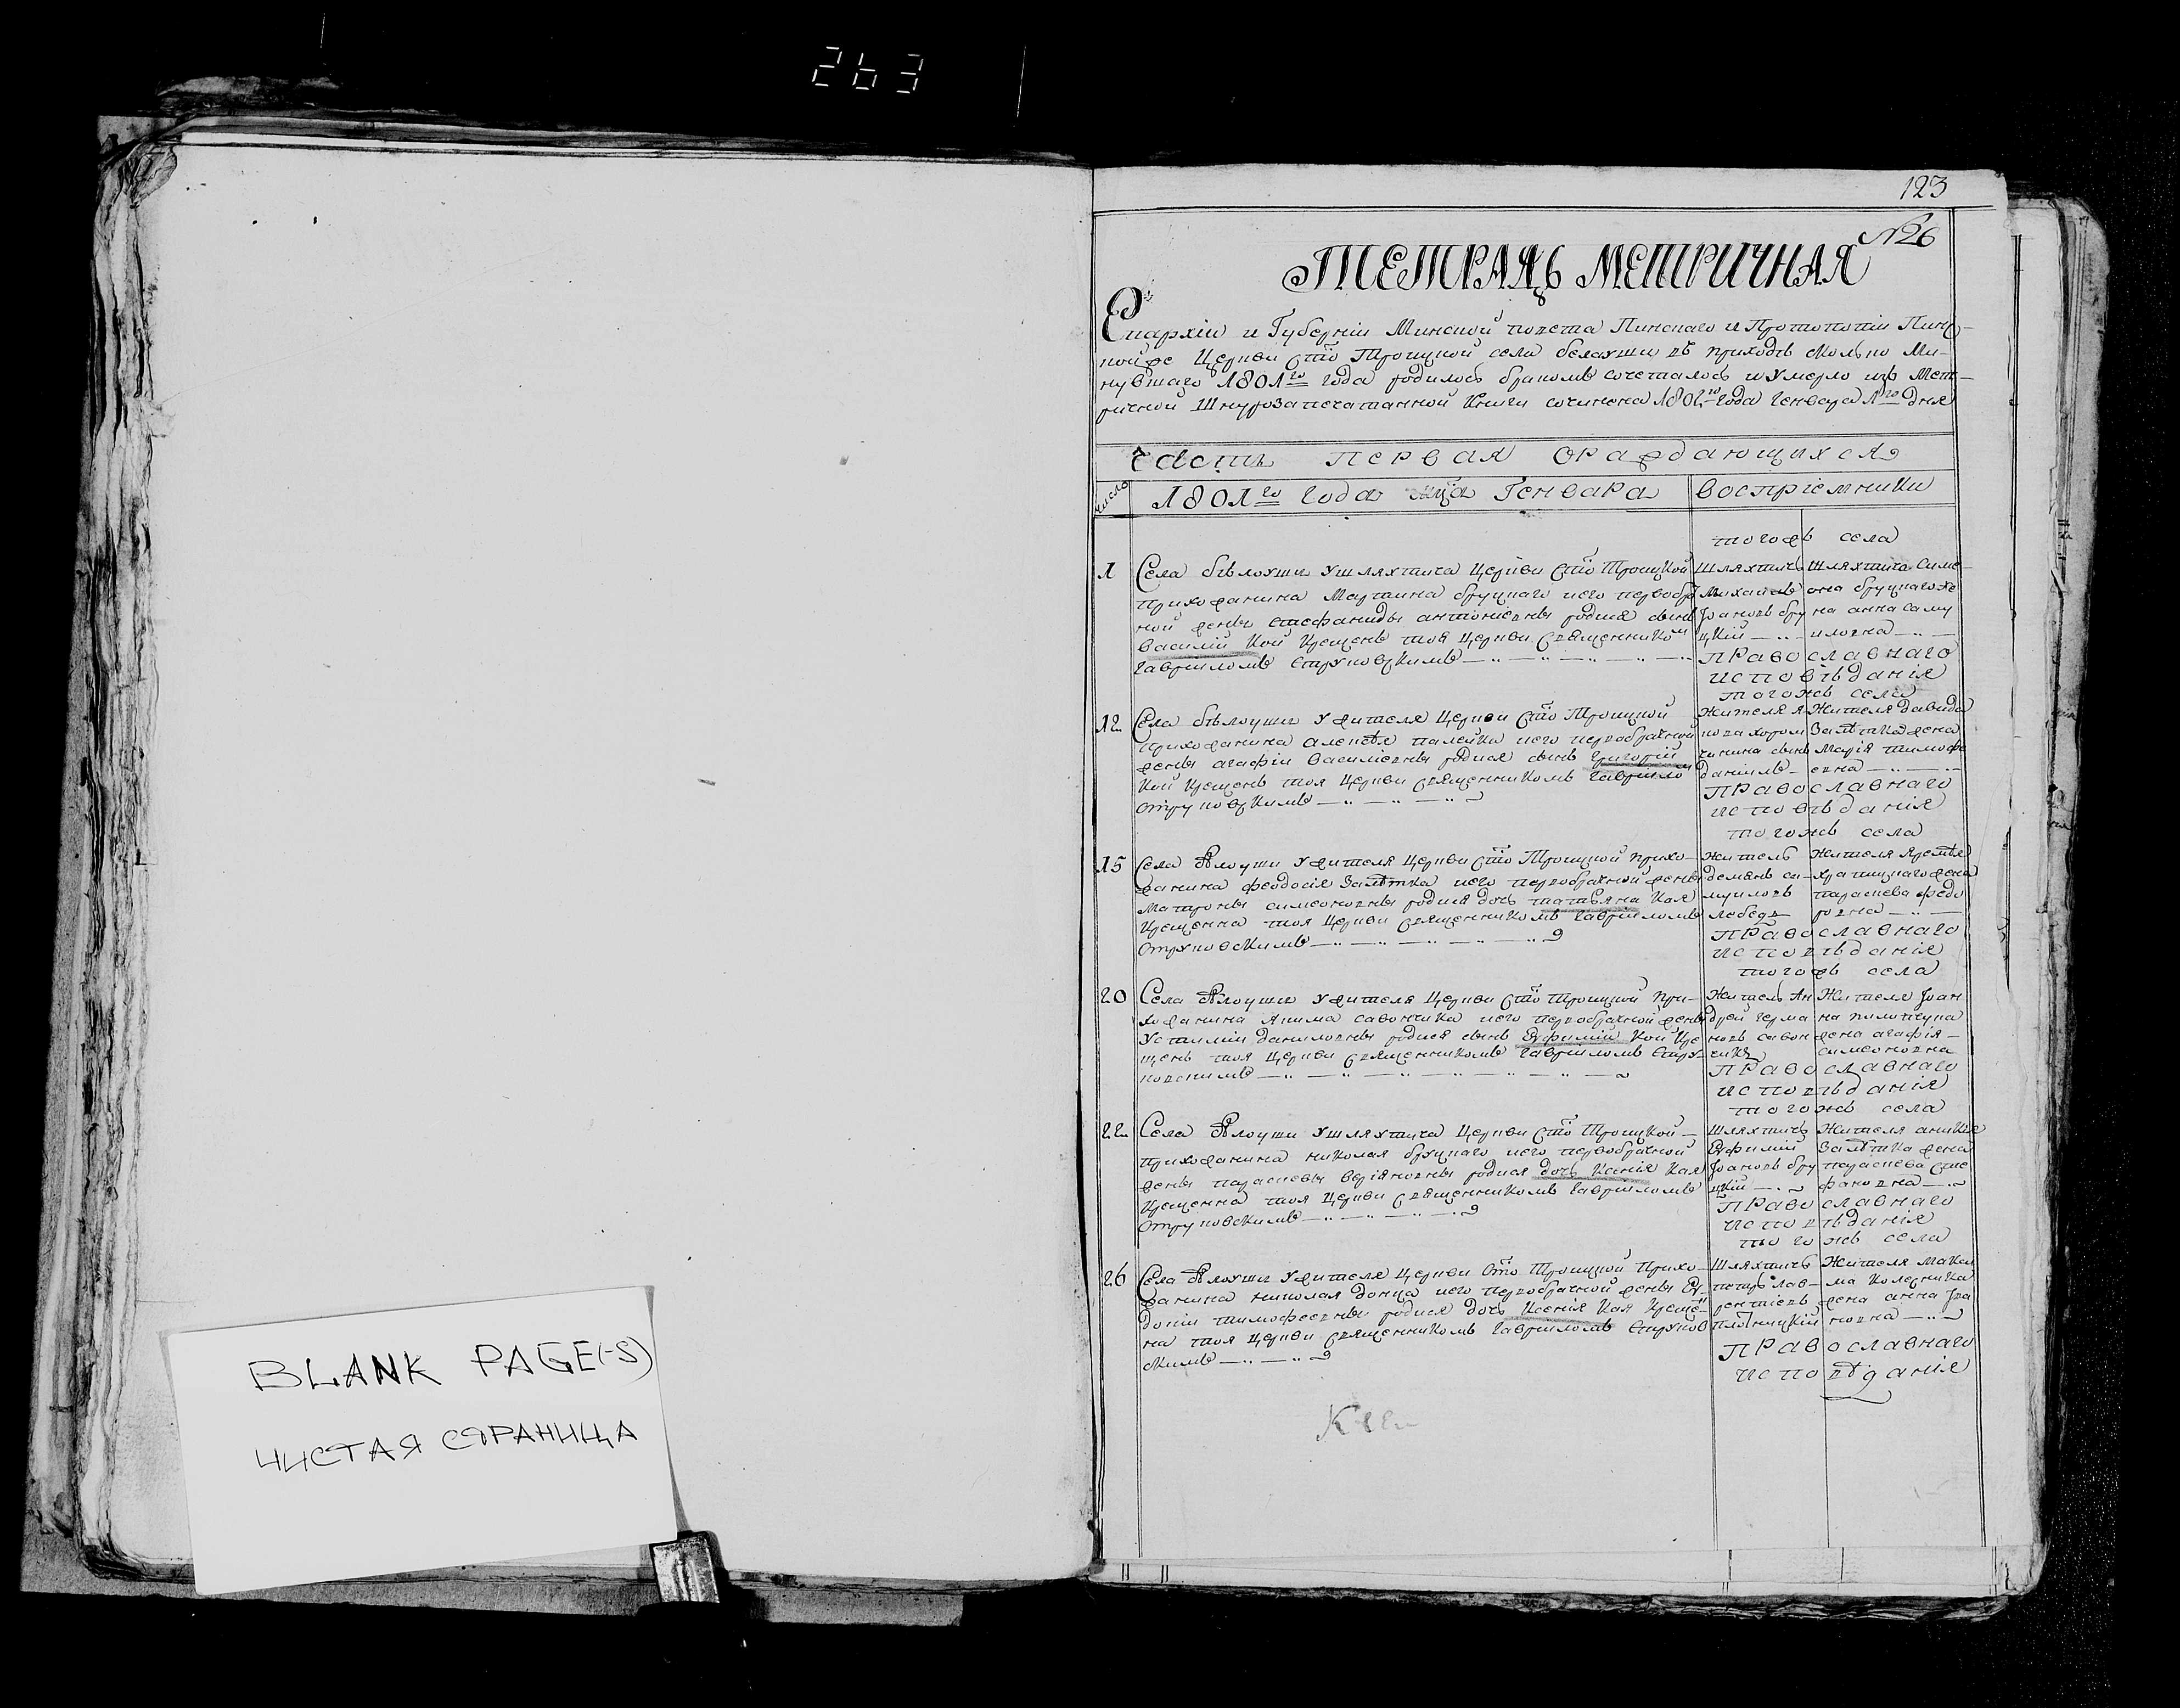 263
123
№ 26
ТЕТРАДЬ МЕТРИЧНАЯ
Епархіи и Губерніи Минской повета Пинскаго и Протопопіи Пинс-
кой же Церкви Сто Троицкой села белоуши въ приходѣ сколько Ми-
нувшаго 1801го года родилось бракомъ сочеталось и Умерло изъ Мет-
ричной Шнурозапечатанной Книги сочинена 1802го года Генваря 1го дня
Часть первая о раждающихся
число
1801го года мца Генвара
восприемники
тогожъ села
1
Села бѣлоуши Ушляхтича Церкви Сто Троицкой
прихожанина Мартина бруцкаго иего первобра
ной жены стефаниды антоніевны родися сынъ
Василій кой Крещенъ тоя Церкви Священником
Гавріиломъ Струковскимъ
Шляхтичъ
Михаилъ
Іоановъ бру
цкій
Шляхтича Симе-
она бруцкаго же
на анна саму
иловна
Православнаго
исповѣданія
тогожъ села
12
Села бѣлоуши Ужителя Церкви Сто Троицкой
прихожанина алексѣя палейки иего первобрачной
жены агафіи Василіевны родися сынъ Григорій
Кой Крещенъ тоя Церкви Священникомъ Гавріило
Струковскимъ
Жителя я
кова хором
чанина сынъ
даніилъ
Жителя давида
Заятка жена
Марія тимофе
евна
Православнаго
исповѣданія
тогожъ села
15
Села Бѣлоуши Ужителя Церкви Сто Троицкой прихо-
жанина феодосія Заятка иего первобрачной жены
Матроны симеоновны родися дочь татьяна Кая
Крещенна тоя Церкви Священникомъ Гавріиломъ
Струковскимъ
Житель
демянъ са-
муиловъ
лебедь
Жителя
жена
параскева федо
ровна
Православнаго
исповѣданія
тогожъ села
20
Села Бѣлоуши Ужителя Церкви Сто Троицкой при-
хожанина якима савончика иего первобрачной жены
Устиніи даниловны родися сынъ Евфимій Кой Кре
щенъ тоя Церкви Священникомъ Гавріиломъ Стру-
ковскимъ
Житель Ан
дрей герма
новъ савон
чикъ
Жителя Іоан
на пилипчука
жена агафія
симеоновна
Православнаго
исповѣданія
тогожъ села
22
Села Бѣлоуши Ушляхтича Церкви Сто Троицкой
прихожанина николая бруцкаго иего первобрачной
жены параскевы родися дочь Ксенія Кая
Крещенна тоя Церкви Священникомъ Гавріиломъ
Струковскимъ
Шляхтичъ
Евфимій
Іоановъ бру
цкій
Жителя аникія
Заятка жена
параскева сте
фановна
Православнаго
исповѣданія
тогожъ села
26
Села Бѣлоуши Ужителя Церкви Сто Троицкой Прихо-
жанина николая донца иего первобрачной жены Ев-
докіи тимофеевны родися дочь Ксенія Кая Креще-
на тоя Церкви Священникомъ Гавріиломъ Струков
скимъ
Шляхтичъ
петръ лав-
рентіевъ
плотницкій
Жителя Макси
ма колесника
жена анна Іоа
новна
Православнаго
исповѣданія
BLANK PAGE(-S)
ЧИСТАЯ СТРАНИЦА